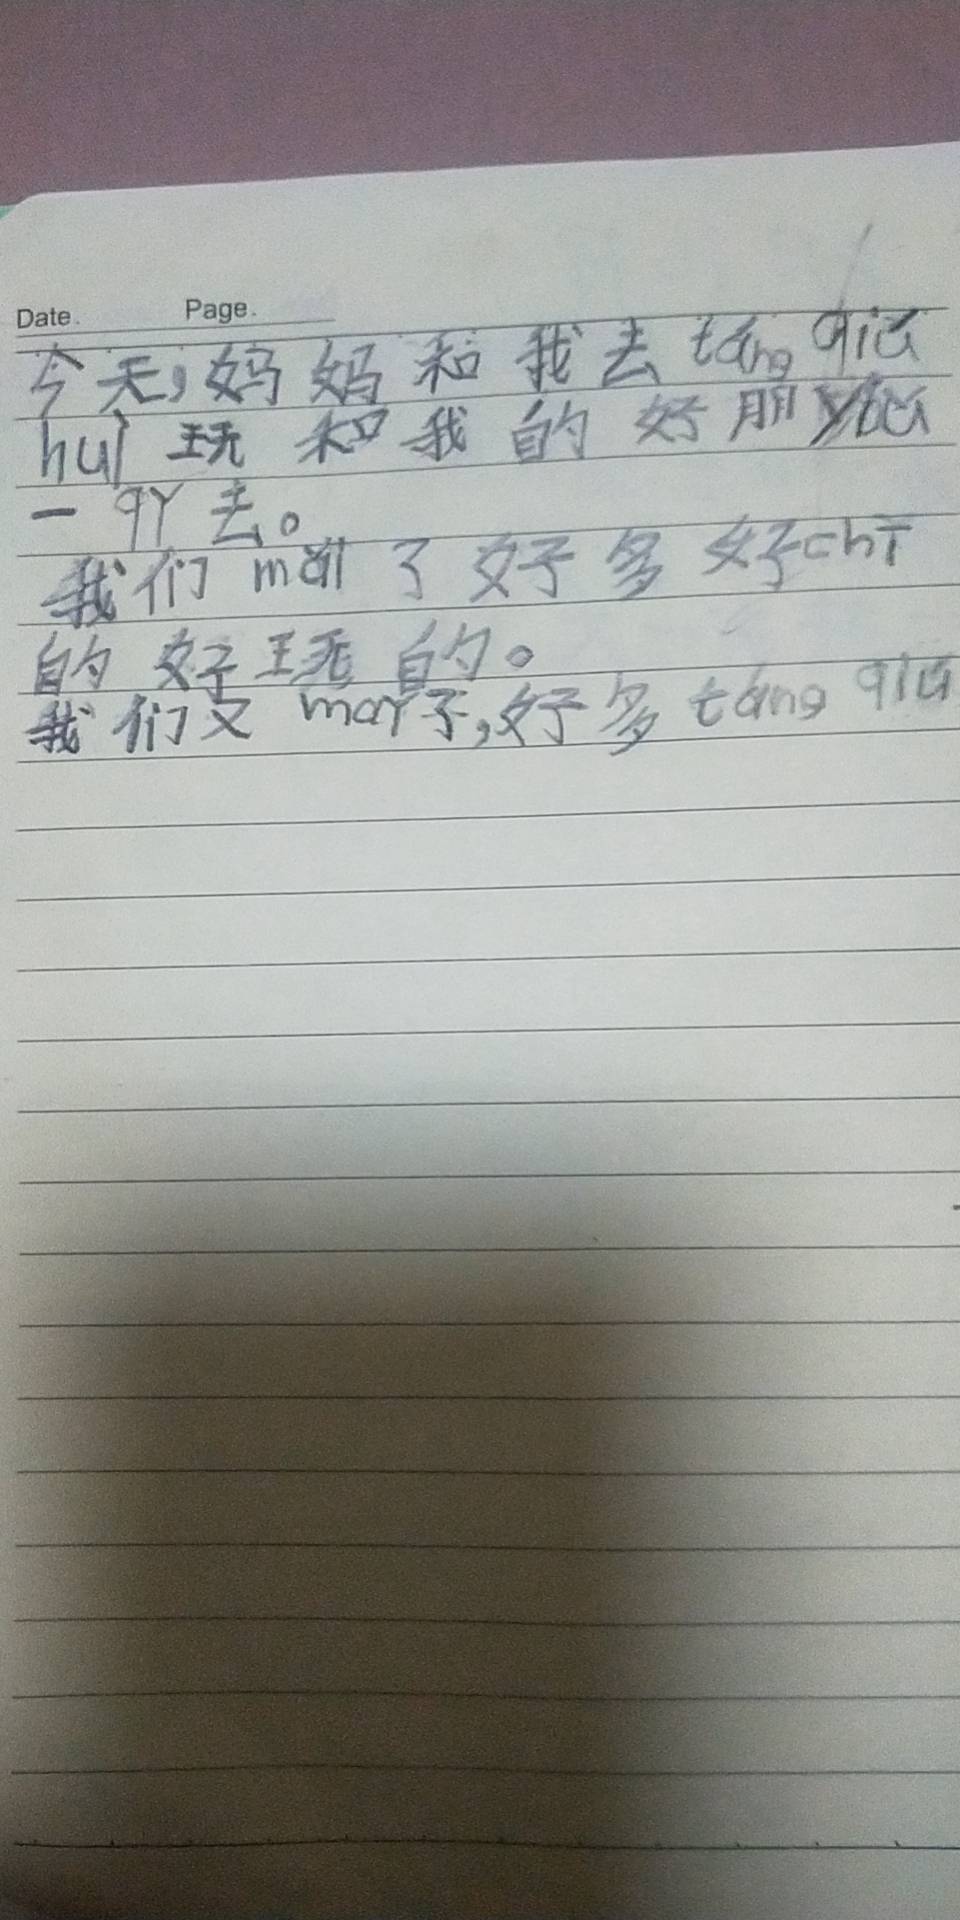 Date. Page.
今天,妈妈和我去táng qiū
huì 玩和我的好朋yǒu
一qǐ去。
我们mǎi了好多好chī
的好玩的。
我们又mǎi了,好多táng qiū